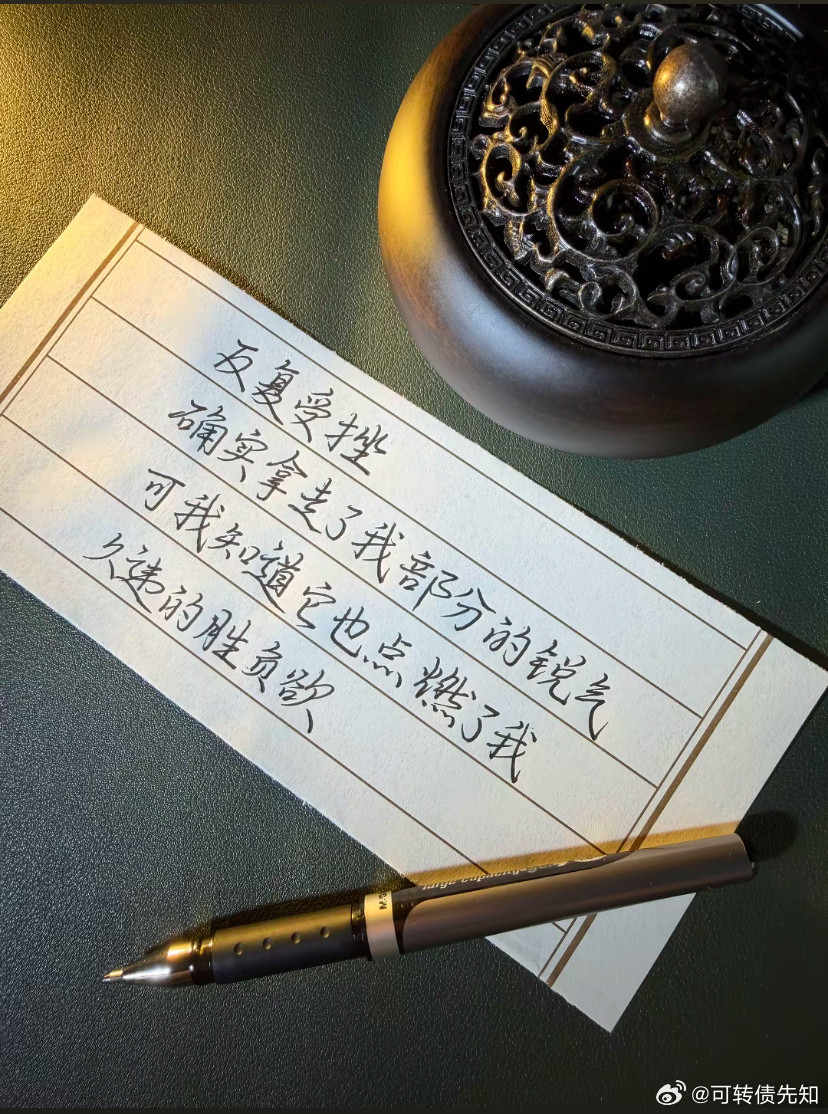 反复受挫
确实拿走了我部分的锐气
可我知道它也点燃了我
久违的胜负欲
@可转债先知